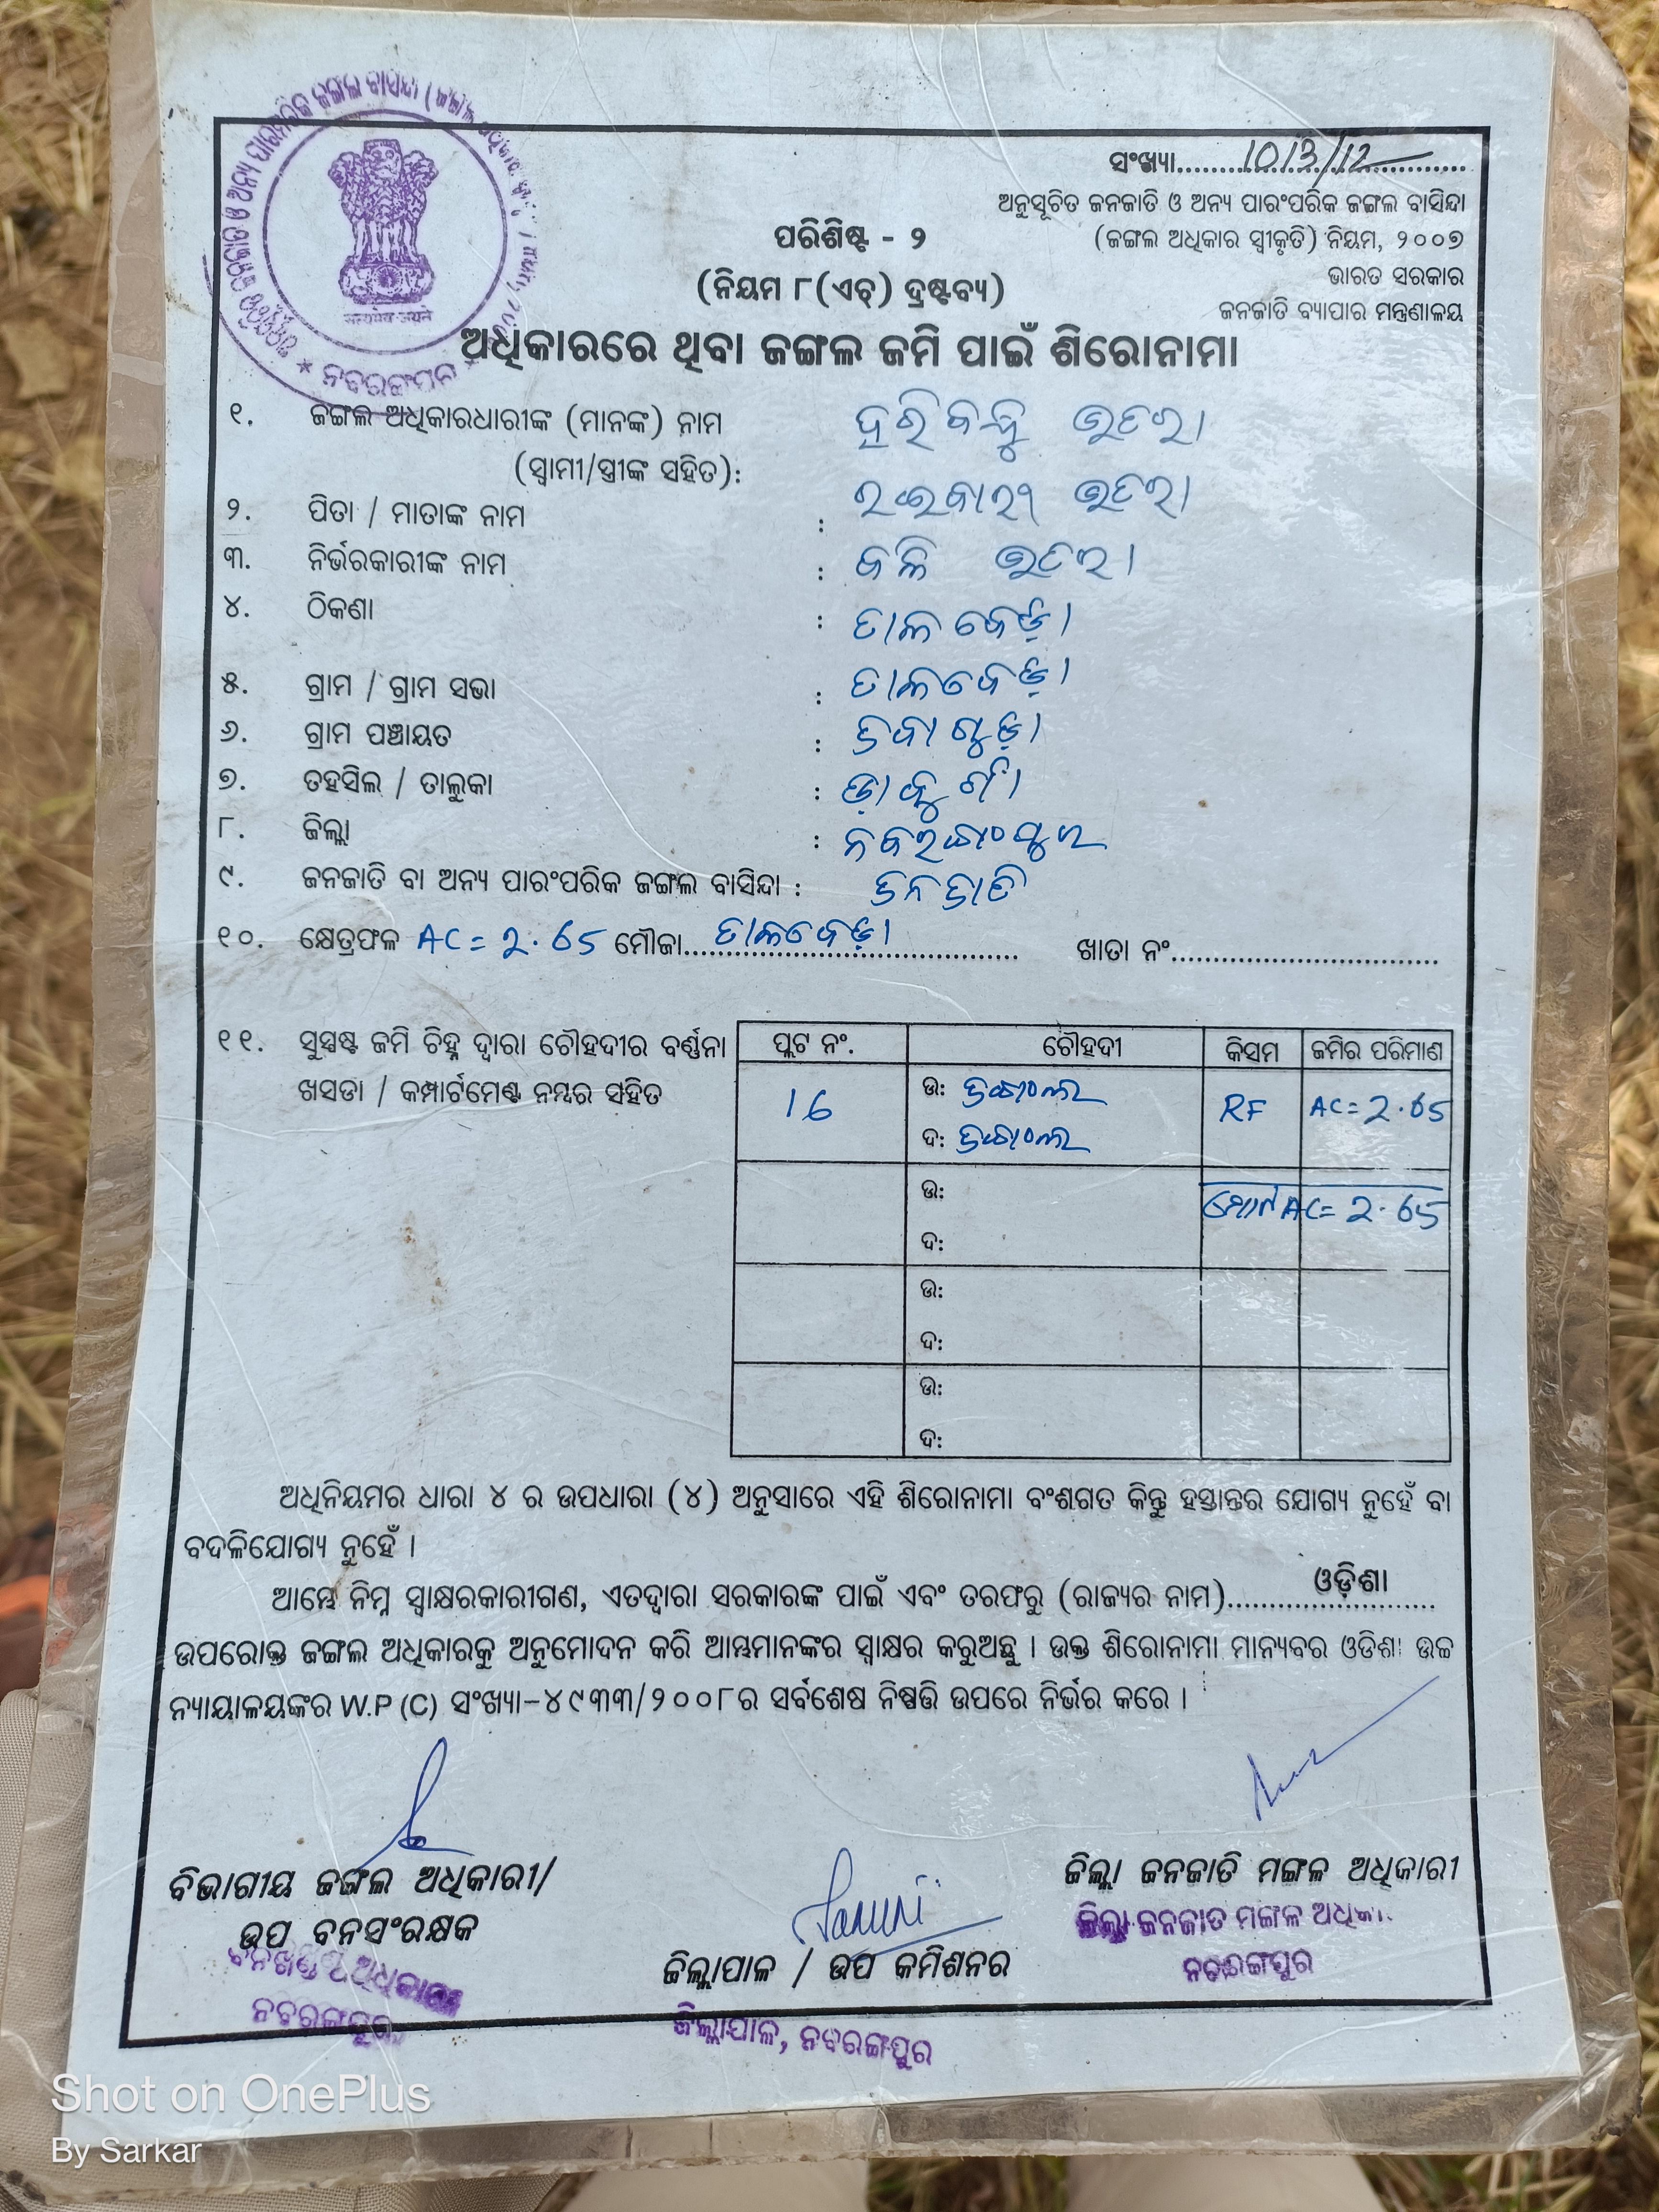 ସଂଖ୍ୟା 10/3/12
ଅନୁସୂଚିତ ଜନଜାତି ଓ ଅନ୍ୟ ପାରଂପରିକ ଜଙ୍ଗଲ ବାସିନ୍ଦା
ପରିଶିଷ୍ଟ - ୨
(ଜଙ୍ଗଲ ଅଧିକାର ସ୍ୱୀକୃତି) ନିୟମ, ୨୦୦୭
ଭାରତ ସରକାର
(ନିୟମ ୮(ଏଚ୍) ଦ୍ରଷ୍ଟବ୍ୟ)
ଜନଜାତି ବ୍ୟାପାର ମନ୍ତ୍ରଣାଳୟ
सत्यमेव जयते
ଅଧିକାରରେ ଥିବା ଜଙ୍ଗଲ ଜମି ପାଇଁ ଶିରୋନାମା
୧. ଜଙ୍ଗଲ ଅଧିକାରଧାରୀଙ୍କ (ମାନଙ୍କ) ନାମ ହରିବନ୍ଧୁ ଭତରା
(ସ୍ୱାମୀ/ସ୍ତ୍ରୀଙ୍କ ସହିତ):
୨. ପିତା / ମାତାଙ୍କ ନାମ : ଭତରା
୩. ନିର୍ଭରକାରୀଙ୍କ ନାମ : ବଳି ଭତରା
୪. ଠିକଣା : ତାଳବେଡ଼ା
୫. ଗ୍ରାମ / ଗ୍ରାମ ସଭା : ତାଳବେଡ଼ା
୬. ଗ୍ରାମ ପଞ୍ଚାୟତ : ଜବାଗୁଡ଼ା
୭. ତହସିଲ / ତାଲୁକା : ଡ଼ାବୁଗାଁ
୮. ଜିଲ୍ଲା : ନବରଙ୍ଗପୁର
୯. ଜନଜାତି ବା ଅନ୍ୟ ପାରଂପରିକ ଜଙ୍ଗଲ ବାସିନ୍ଦା : ଜନଜାତି
୧୦. କ୍ଷେତ୍ରଫଳ AC = 2.65 ମୌଜା ତାଳବେଡ଼ା ଖାତା ନଂ
୧୧. ସୁସ୍ପଷ୍ଟ ଜମି ଚିହ୍ନ ଦ୍ୱାରା ଚୌହଦୀର ବର୍ଣ୍ଣନା
ଖସଡା / କମ୍ପାର୍ଟମେଣ୍ଟ ନମ୍ବର ସହିତ
ପ୍ଲଟ ନଂ. ଚୌହଦୀ କିସମ ଜମିର ପରିମାଣ
16 ଉ: ଜଙ୍ଗଲ RF AC = 2.65
ଦ: ଜଙ୍ଗଲ
ଉ: ମୋଟ AC = 2.65
ଦ:
ଉ:
ଦ:
ଉ:
ଦ:
ଅଧିନିୟମର ଧାରା ୪ ର ଉପଧାରା (୪) ଅନୁସାରେ ଏହି ଶିରୋନାମା ବଂଶଗତ କିନ୍ତୁ ହସ୍ତାନ୍ତର ଯୋଗ୍ୟ ନୁହେଁ ବା
ବଦଳିଯୋଗ୍ୟ ନୁହେଁ ।
ଆମ୍ଭେ ନିମ୍ନ ସ୍ୱାକ୍ଷରକାରୀଗଣ, ଏତଦ୍ୱାରା ସରକାରଙ୍କ ପାଇଁ ଏବଂ ତରଫରୁ (ରାଜ୍ୟର ନାମ) ଓଡ଼ିଶା
ଉପରୋକ୍ତ ଜଙ୍ଗଲ ଅଧିକାରକୁ ଅନୁମୋଦନ କରି ଆମ୍ଭମାନଙ୍କର ସ୍ୱାକ୍ଷର କରୁଅଛୁ । ଉକ୍ତ ଶିରୋନାମା ମାନ୍ୟବର ଓଡିଶା ଉଚ୍ଚ
ନ୍ୟାୟାଳୟଙ୍କର W.P (C) ସଂଖ୍ୟା-୪୯୩୩/୨୦୦୮ର ସର୍ବଶେଷ ନିଷ୍ପତ୍ତି ଉପରେ ନିର୍ଭର କରେ ।
ବିଭାଗୀୟ ଜଙ୍ଗଲ ଅଧିକାରୀ/
ଉପ ବନସଂରକ୍ଷକ
ନବରଙ୍ଗପୁର
ଜିଲ୍ଲାପାଳ / ଉପ କମିଶନର
ଜିଲ୍ଲାପାଳ, ନବରଙ୍ଗପୁର
ଜିଲ୍ଲା ଜନଜାତି ମଙ୍ଗଳ ଅଧିକାରୀ
ଜିଲ୍ଲା ଜନଜାତି ମଙ୍ଗଳ
ନବରଙ୍ଗପୁର
Shot on OnePlus
By Sarkar